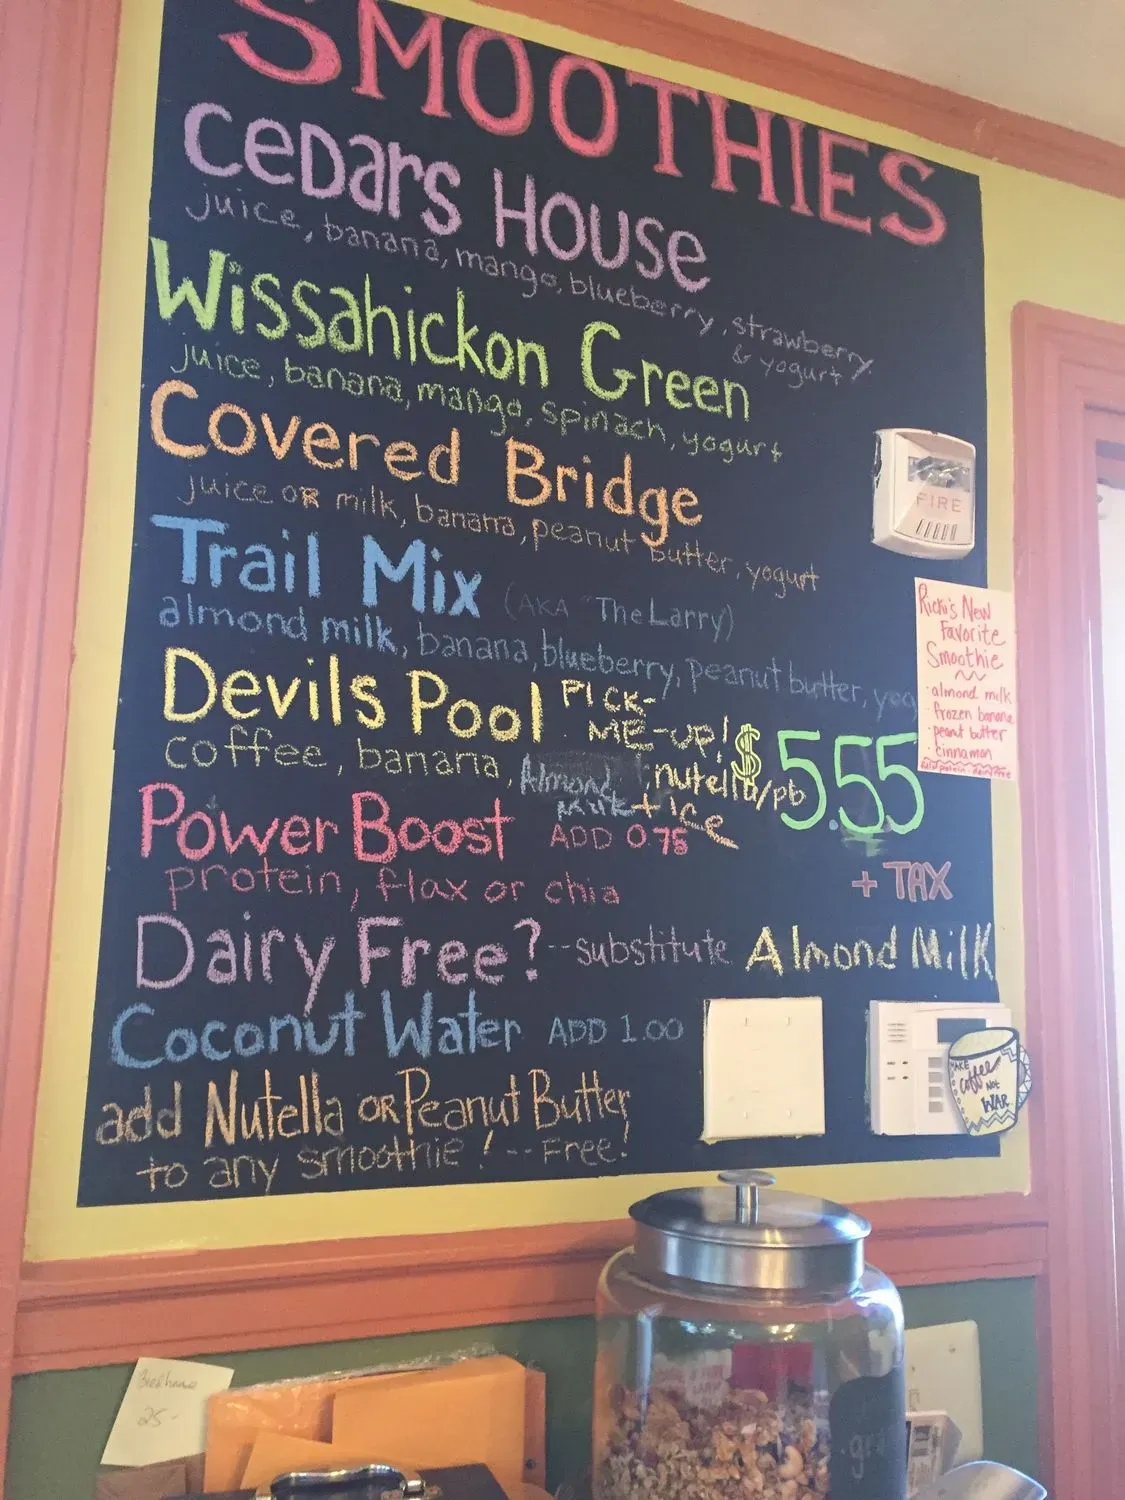 SMOOTHIES
Cedars House
juice, banana, mango, blueberry, strawberry
& yogurt
Wissahickon Green
juice, banana, mango, spinach, yogurt
Covered Bridge
juice OR milk, banana, peanut butter, yogurt
Trail Mix (AKA "The Larry)
almond milk, banana, blueberry, peanut butter, yog
Devils Pool PICK-
ME-UP!
coffee, banana, Almond Milk + ice nutella/pb
$5.55
+ TAX
Power Boost ADD 0.75
protein, flax or chia
Dairy Free? -- substitute Almond Milk
Coconut Water ADD 1.00
add Nutella OR Peanut Butter
to any smoothie! -- Free!
FIRE
Ricki's New
Favorite
Smoothie
· almond milk
· frozen banana
· peanut butter
· cinnamon
MAKE
Coffee
NOT
WAR
25-